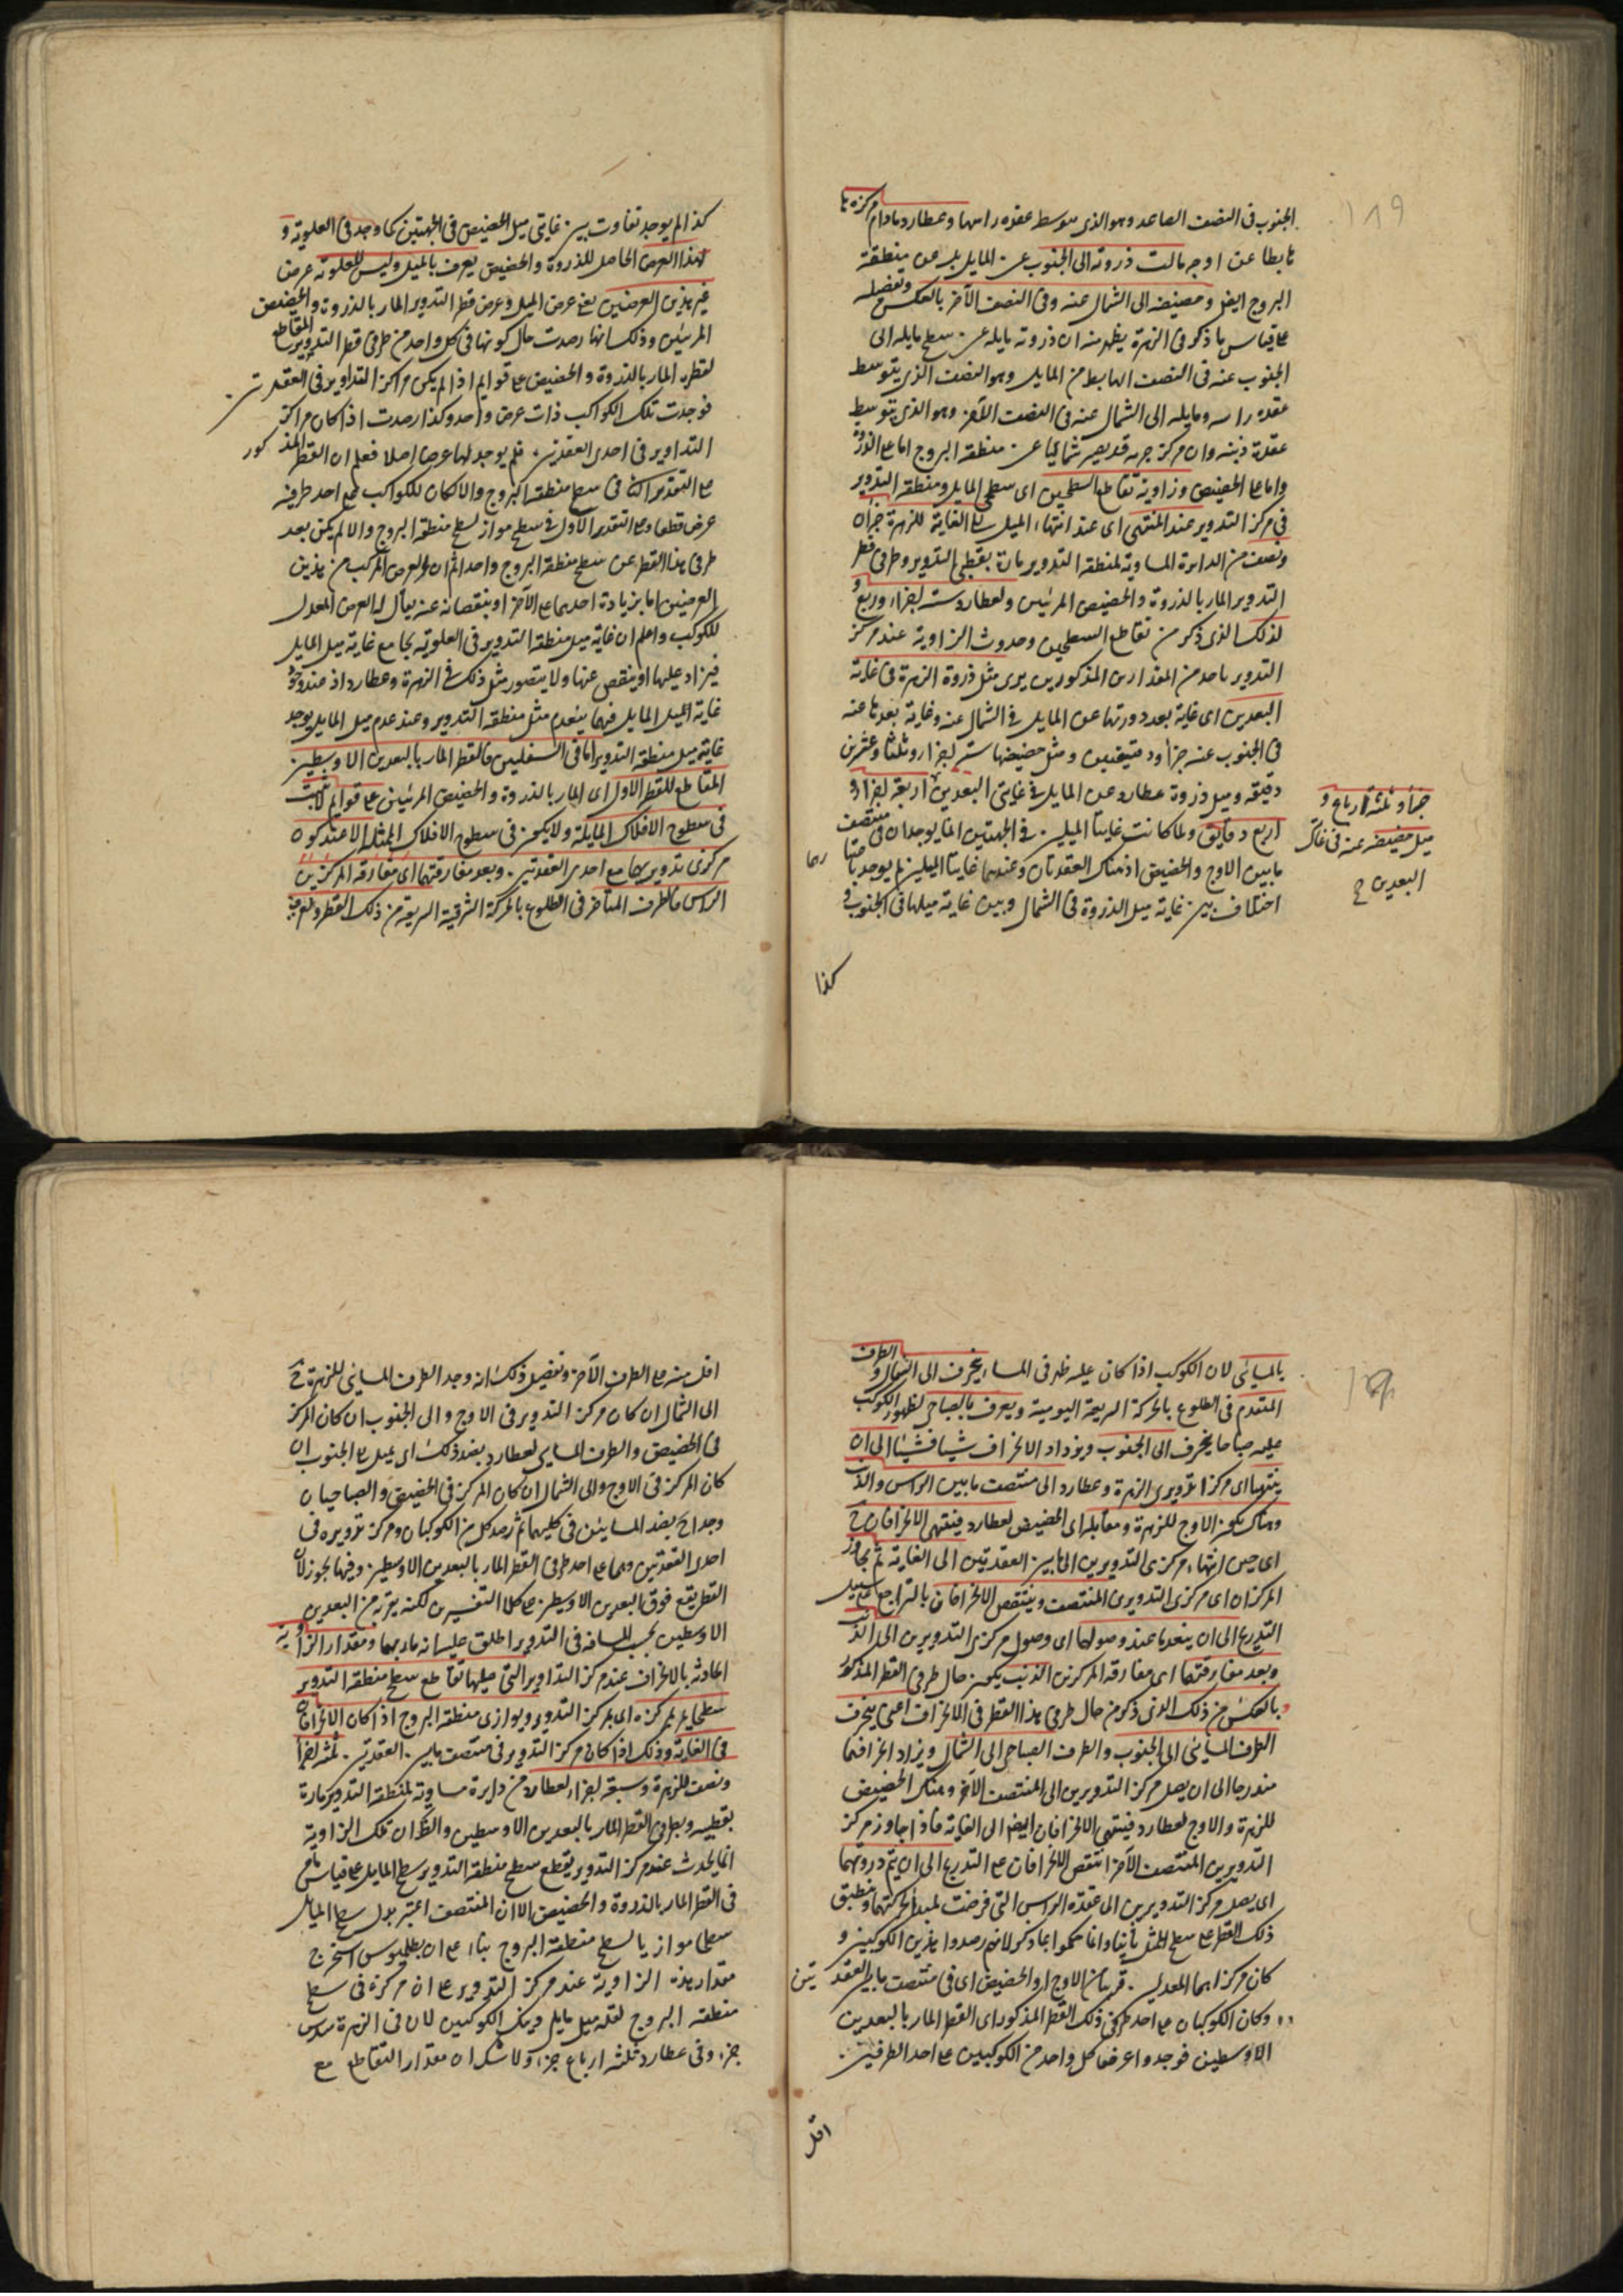 ١٨٩
الجنوب فى النصف الصاعد وهو الذى يتوسط عقدة راسها وعطارد مادام مركزه ها
بطا عن اوجه مالت ذروته الى الجنوب عن المايل بل عن منطقة
البروج ايضا وحضيضه الى الشمال عنه وفى النصف الآخر بالعكس وتفصيله
على قياس ما ذكر فى الزهرة يظهر منه ان ذروته مايلة عن سطح مايله الى
الجنوب عنه فى النصف الهابط من المايل وهو النصف الذى يتوسط
عقدة راسه ومايلة الى الشمال عنه فى النصف الآخر وهو الذى يتوسط
عقدة ذنبه وان مركز جرمه قد يصير شماليا عن منطقة البروج اما على الذروة
واما على الحضيض وزاوية تقاطع السطحين اى سطحى المايل ومنطقة التدوير
فى مركز التدوير عند المنتهى اى عند انتهاء الميل الى الغاية للزهرة جزآن
ونصف من الدايرة المساوية لمنطقة التدوير مارة بقطبى التدوير وطرفى قطر
التدوير المار بالذروة والحضيض المرئيين ولعطارد ستة اجزاء وربع و
لذلك الذى ذكر من تقاطع السطحين وحدوث الزاوية عند مركز
التدوير باحد من المقدارين المذكورين يرى مثل ذروة الزهرة فى غاية
البعدين اى غاية بعد ذروتها عن المايل فى الشمال عنه وغاية بعدها عنه
فى الجنوب عنه جزأ ودقيقتين ومثل حضيضها ستة اجزاء وثلثا وعشرين
دقيقة وميل ذروة عطارد عن المايل فى غايتى البعدين اربعة اجزاء و
اربع دقايق ولما كانت غايتا الميلين فى الجهتين انما يوجدان فى منتصف
ما بين الاوج والحضيض اذ هناك العقدتان وعندهما غايتا الميلين لم يوجد
اختلاف بين غاية ميل الذروة فى الشمال وبين غاية ميلها فى الجنوب و
جزأ وثلثة ارباع و
ميل حضيضه عنه فى غايتى
البعدين ح
كذا
كذا لم يوجد تفاوت بين غايتى ميل الحضيض فى الجهتين كما وجد فى العلوية و
هذا العرض الحاصل للذروة والحضيض يعرف بالميل وليس للعلوية عرض
غير هذين العرضين يعنى عرض الميل وعرض قطر التدوير المار بالذروة والحضيض
المرئيين وذلك انها رصدت حال كونها فى كل واحد من طرفى قطر التدوير المقاطع
لقطره المار بالذروة والحضيض على قوايم اذا لم يكن مراكز التداوير فى العقدتين
فوجدت تلك الكواكب ذات عرض واحد وكذا رصدت اذا كان مراكز
التداوير فى احدى العقدتين فلم يوجد لها عرض اصلا فعلم ان القطر المذكور
على التقدير الثانى فى سطح منطقة البروج والا لكان للكواكب على احد طرفيه
عرض قطعا وعلى التقدير الاول فى سطح مواز لسطح منطقة البروج والا لم يكن بعد
طرفى هذا القطر عن سطح منطقة البروج واحدا ثم ان العرض المركب من هذين
العرضين اما بزيادة احدهما على الآخر او بنقصانه عنه يقال له العرض المعدل
للكوكب واعلم ان غاية ميل منطقة التدوير فى العلوية يجامع غاية ميل المايل
فيزاد عليها او ينقص عنها ولا يتصور مثل ذلك فى الزهرة وعطارد اذ عند وجود
غاية الميل المايل فيهما ينعدم مثل منطقة التدوير وعند عدم ميل المايل يوجد
غاية ميل منطقة التدوير اما فى السفليين فالقطر المار بالبعدين الاوسطين
المقاطع للقطر الاول اى المار بالذروة والحضيض المرئيين على قوايم لا يثبت
فى سطوح الافلاك المايلة ولا يكون فى سطوح الافلاك الممثلة الا عند كون
مركزى تدويريهما مع احدى العقدتين وبعد مفارقتهما اى مفارقة المركزين
الراس فالطرف المتاخر فى الطلوع بالحركة الشرقية السريعة من ذلك القطر
بالمسائى لان الكوكب اذا كان عليه ظهر فى المساء ينحرف الى الشمال والطرف
المتقدم فى الطلوع بالحركة السريعة اليومية ويعرف بالصباحى لظهور الكوكب
عليه صباحا ينحرف الى الجنوب ويزداد الانحراف شيأ فشيأ الى ان
ينتهيا اى مركزا تدويرى الزهرة وعطارد الى منتصف ما بين الراس والذنب
وهناك يكون الاوج للزهرة ومقابله اى الحضيض لعطارد فينتهى الانحرافان ح
اى حين انتهاء مركزى التدويرين الى ما بين العقدتين الى الغاية ثم يجاوز
المركزان اى مركزى التدويرين المنتصف وينتقص الانحرافان بالتراجع على سبيل
التدريج الى ان ينعدما عند وصولهما اى وصول مركزى التدويرين الى الذنب
وبعد مفارقتهما اى مفارقة المركزين الذنب يكون حال طرفى القطر المذكور
بالعكس من ذلك الذى ذكر من حال طرفى هذا القطر فى الانحراف اعنى ينحرف
الطرف المسائى الى الجنوب والطرف الصباحى الى الشمال ويزاد انحرافهما
متدرجا الى ان يصل مركز التدويرين الى المنتصف الآخر وهناك الحضيض
للزهرة والاوج لعطارد فينتهى الانحرافان ايضا الى الغاية فاذا جاوز مركز
التدويرين المنتصف الآخر انتقص الانحرافان على التدريج الى ان يتم دورتهما
اى يصل مركز التدويرين الى عقدة الراس التى فرضت لمبدأ حركتهما وينطبق
ذلك القطر على سطح الممثل ثانيا وانما حكموا بما ذكر لانهم رصدوا هذين الكوكبين و
كان مركزاهما المعدل قريبا من الاوج او الحضيض اى فى منتصف ما بين العقدتين
وكان الكوكبان على احد طرفى ذلك القطر المذكور اى القطر المار بالبعدين
الاوسطين فوجدوا عرض كل واحد من الكوكبين على احد الطرفين
اقل
اقل منه على الطرف الآخر وتفصيل ذلك انه وجد الطرف المسائى للزهرة ح
الى الشمال ان كان مركز التدوير فى الاوج والى الجنوب ان كان المركز
فى الحضيض والطرف المسائى لعطارد بضد ذلك اى يميل الى الجنوب ان
كان المركز فى الاوج والى الشمال ان كان المركز فى الحضيض والصباحيان
وجدا ح بضد المسائيين فى كليهما ثم رصد كل من الكوكبان ومركز تدويره فى
احدى العقدتين وهما على احد طرفى القطر المار بالبعدين الاوسطين وفيها تجوز لان
القطر يقع فوق البعدين الاوسطين على كلا التفسيرين لكنه يقربه من البعدين
الاوسطين بحسب المسافة فى التدوير اطلق عليه انه مار بهما ومقدار الزاوية
الحادثة بالانحراف عند مركز التداوير التى عليها تقاطع سطح منطقة التدوير
سطحا يمر بمركزه اى بمركز التدوير ويوازى منطقة البروج اذا كان الانحرافان
فى الغاية وذلك اذا كان مركز التدوير فى منتصف ما بين العقدتين ثلثة اجزاء
ونصف للزهرة وسبعة اجزاء لعطارد من دايرة مساوية لمنطقة التدوير مارة
بقطبيه وبطرفى القطر المار بالبعدين الاوسطين والظ ان تلك الزاوية
انما يحدث عند مركز التدوير بقطع سطح منطقة التدوير سطح المايل على قياس ما مر
فى القطر المار بالذروة والحضيض الا ان المصنف اعتبر بدل سطح المايل
سطحا موازيا لسطح منطقة البروج بناء على ان بطلميوس استخرج
مقدار هذه الزاوية عند مركز التدوير على ان مركزه فى سطح
منطقة البروج لقلة ميل مايل هذين الكوكبين لان فى الزهرة سدس
جزء وفى عطارد ثلثة ارباع جزء ولا شك ان مقدار التقاطع مع